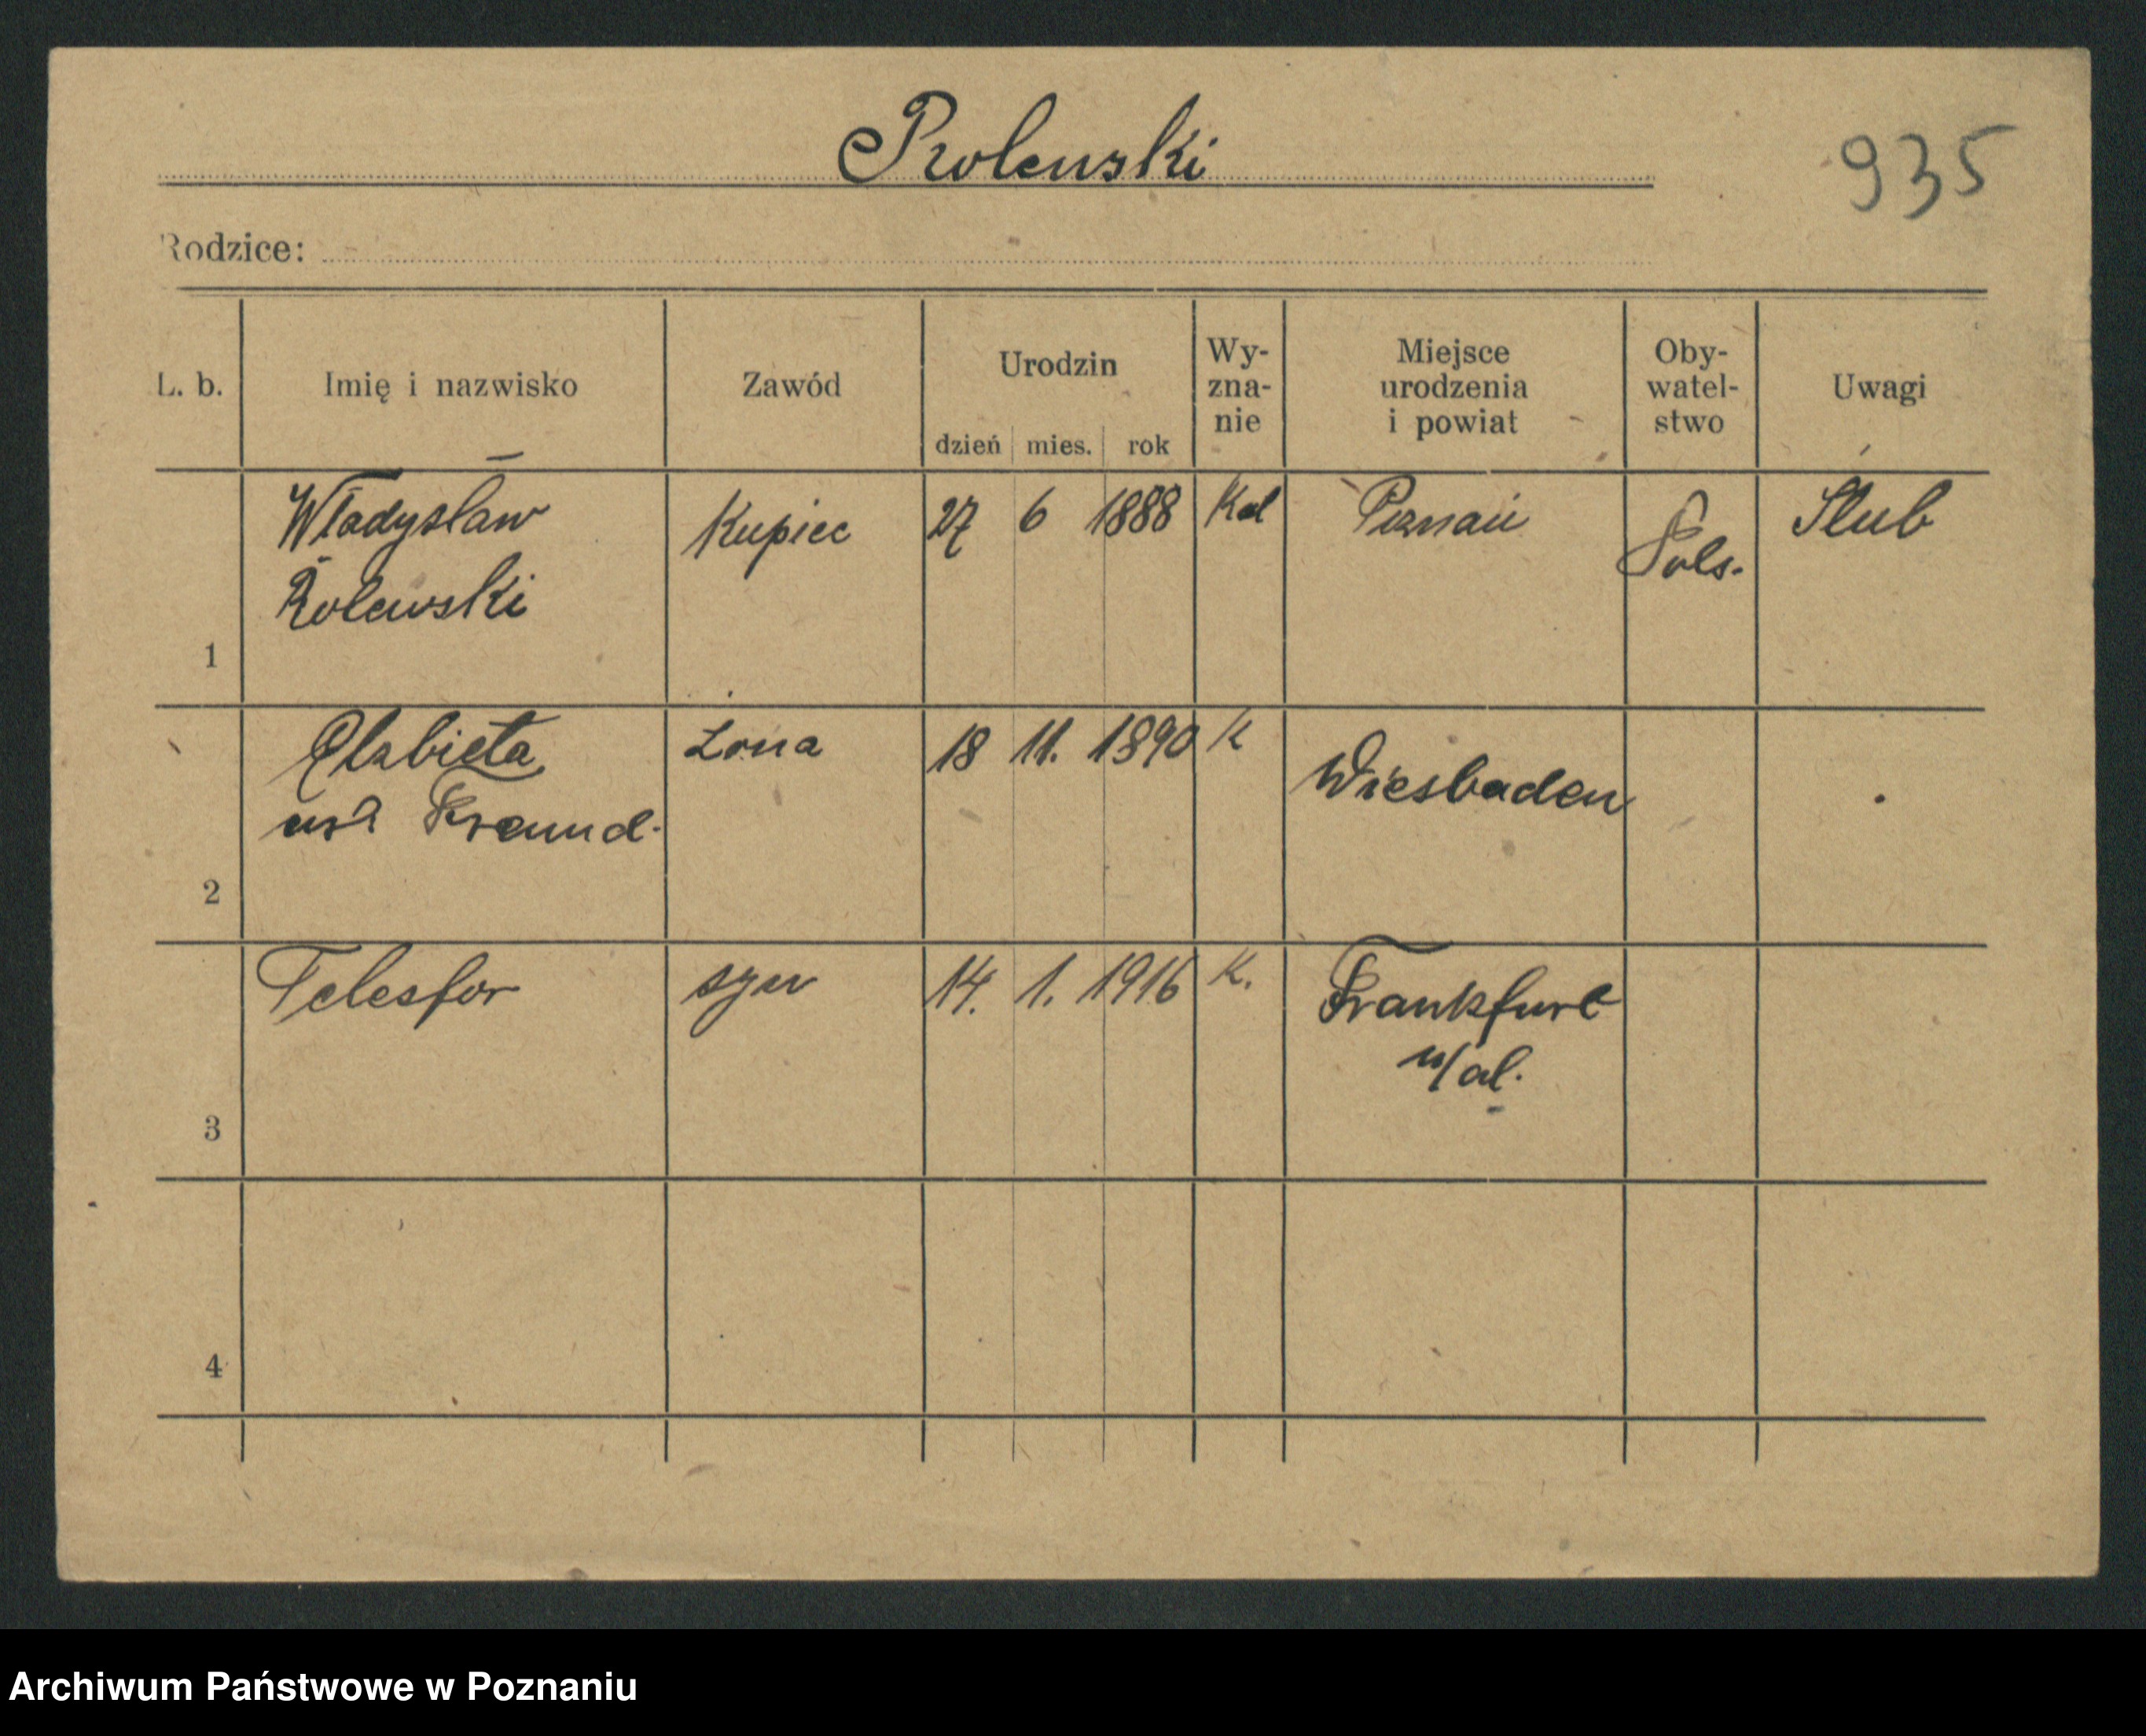 Rolewski
935
Rodzice:
L. b. Imię i nazwisko Zawód Urodzin dzień mies. rok Wy-zna-nie Miejsce urodzenia i powiat Oby-watel-stwo Uwagi
1 Władysław Kupiec 27 6 1888 Kat Poznań Pols. Ślub
Rolewski
2 Elżbieta żona 18 11. 1890 K Wiesbaden
Freund
3 Telesfor syn 14. 1. 1916 K. Frankfurt
4
Archiwum Państwowe w Poznaniu